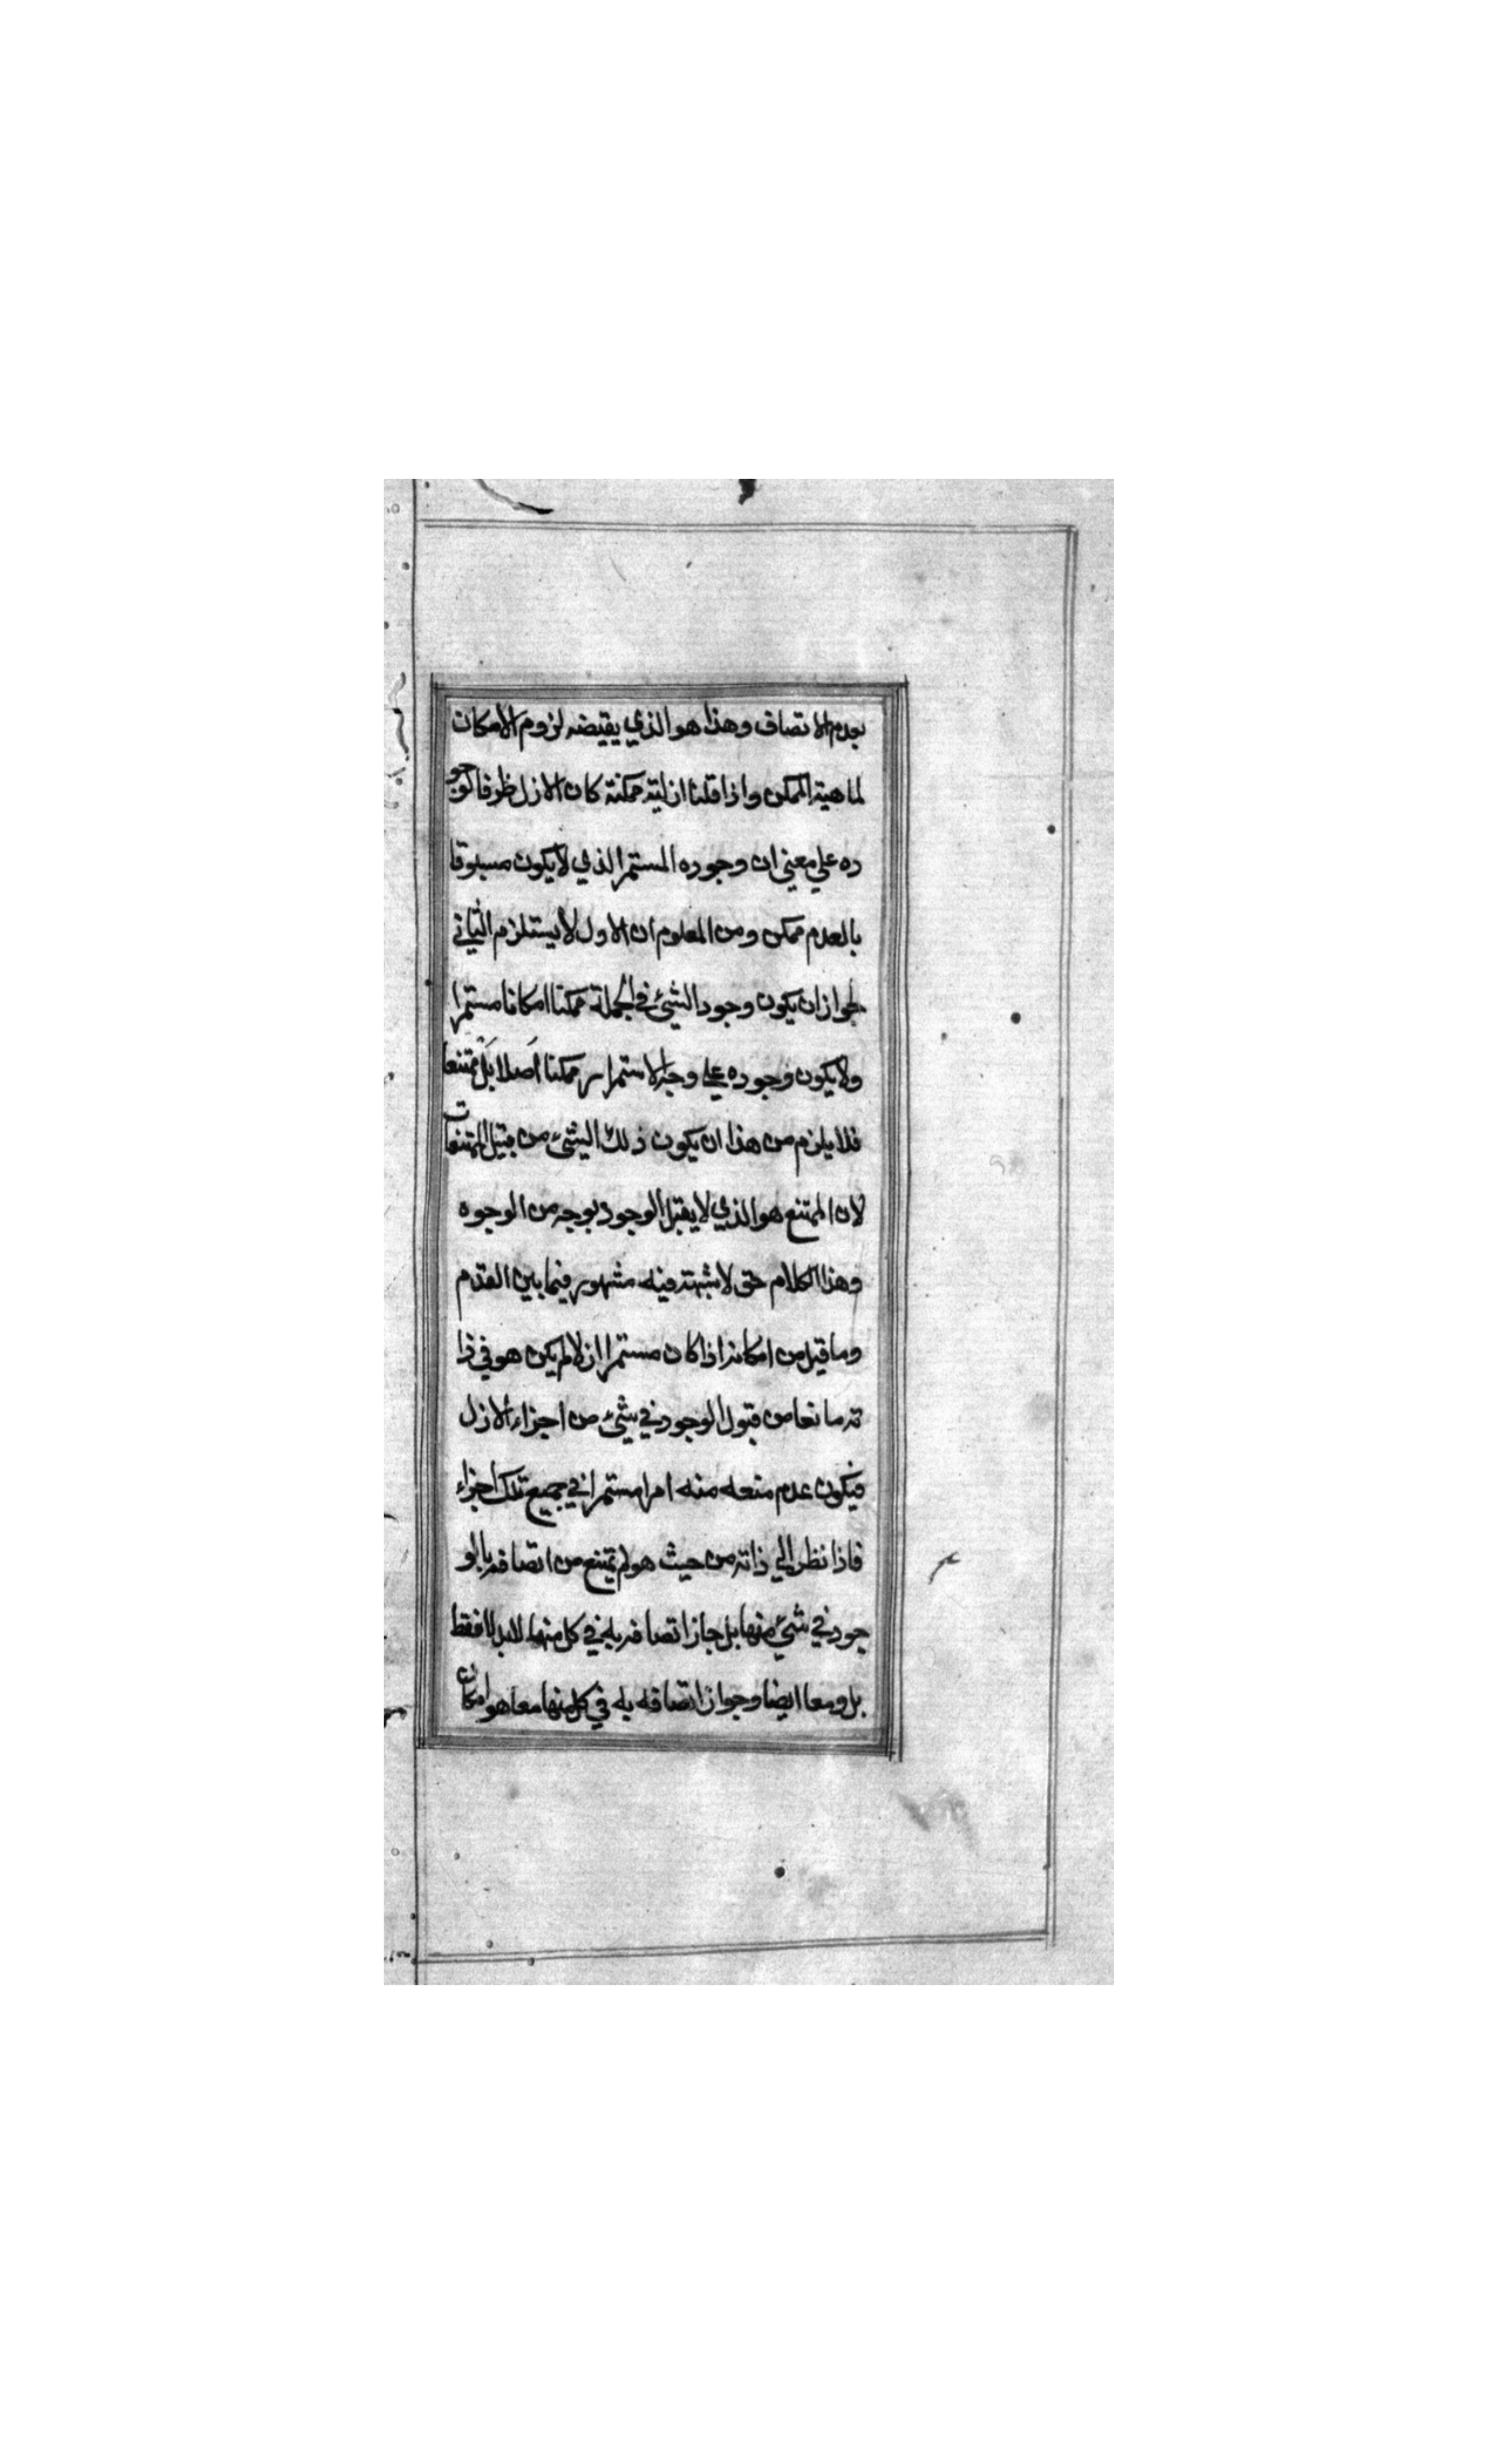 بعدم الاتصاف وهذا هو الذي يقيضه لزوم الامكان
لماهية الممكن واذا قلنا ازليته ممكنة كان الازل ظرفا لوجو
ده علي معني ان وجوده المستمر الذي لا يكون مسبوقا
بالعدم ممكن ومن المعلوم ان الاول لا يستلزم الثاني
لجواز ان يكون وجود الشيئ في الجملة ممكنا امكانا مستمرا
ولا يكون وجوده علي وجه الاستمرار ممكنا اصلا بل ممتنعا
فلا يلزم من هذا ان يكون ذلك الشيئ من قبيل الممتنعات
لان الممتنع هو الذي لا يقبل الوجود بوجه من الوجوه
وهذا الكلام حق لا شبهة فيه مشهور فيما بين القدم
وما قيل من امكانه اذا كان مستمرا ازلا لم يكن هو في ذا
ته مانعا من قبول الوجود في شيئ من اجزاء الازل
فيكون عدم منعه منه امرا مستمرا في جميع تلك اجزاء
فاذا نظر الي ذاته من حيث هو لم يمتنع من اتصافه بالو
جود في شيئ منها بل جاز اتصافه به في كل منها لا بدلا فقط
بل ومعا ايضا وجواز اتصافه به في كل منها معا هو امكان